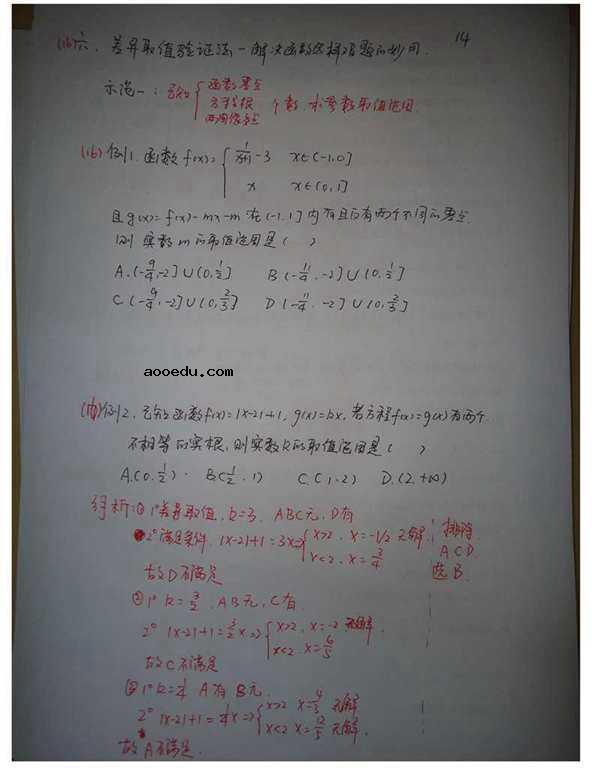 (16)六、差异取值验证法-解决函数零点问题的妙用. 14
示范一:已知{函数零点 方程根 两图像交点 个数,求参数取值范围.
(16)例1.函数 f(x)={ 1/(x+1) -3 x∈(-1,0]
x x∈(0,1]
且 g(x)=f(x)-mx-m 在 (-1,1] 内有且仅有两个不同的零点.
则实数 m 的取值范围是( )
A.(-9/4,-2]∪(0,1/2] B.(-11/4,-2]∪(0,1/2]
C.(-9/4,-2]∪(0,2/3] D.(-11/4,-2]∪(0,2/3]
aooedu.com
例2.已知函数f(x)=|x-2|+1, g(x)=kx, 若方程f(x)=g(x)有两个
不相等的实根,则实数k的取值范围是( )
A.(0,1/2). B.(1/2,1) C.(1,2) D.(2,+∞)
分析:①1°差异取值,k=3. ABC无,D有
2°满足条件. |x-2|+1=3x⇒{x>2, x=-1/2 无解; 排除
x<2, x=3/4 ACD.
故D不满足 选B.
②1° k=3/2. AB无,C有.
2° |x-2|+1=3/2x⇒{x>2, x=-2 无解.
x<2 x=6/5
故C不满足
③1° k=1/4 A有 B无.
2° |x-2|+1=1/4x⇒{x>2 x=4/3 无解
x<2 x=12/5 无解.
故A不满足.